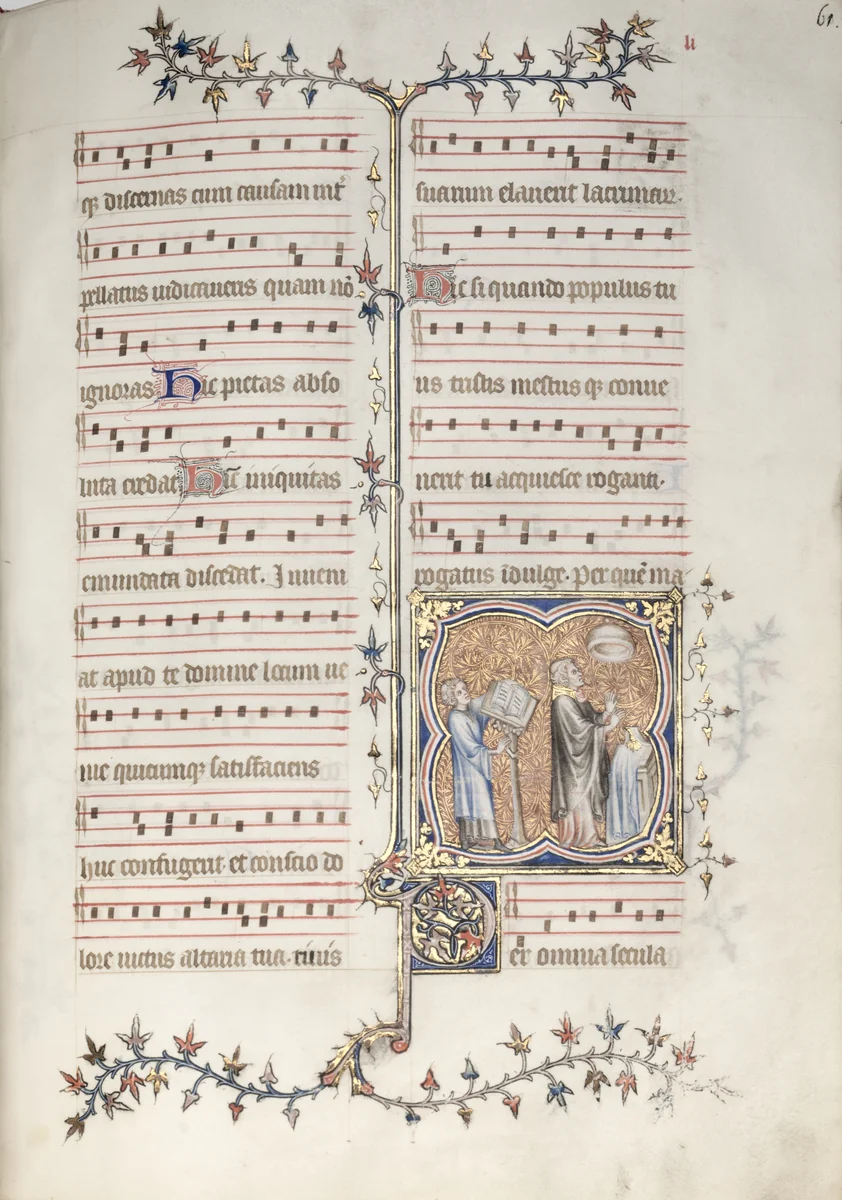 61.
li
q3 discernas cum causam int͛
pellatus iudicaveris quam nō
ignoras Hic pietas abso
luta credat Hic iniquitas
emundata discedat. Inveni
at apud te domine locum ve
nie quicumq3 satisfaciens
huc confugerit et conscio do
lore victus altaria tua. rivis
suarum elaverit lacrimar.
Hic si quando populus tu
us tristis mestus q3 conve
nerit tu acquiesce rogari.
rogatus īdulge. Per quē ma
Per omnia secula